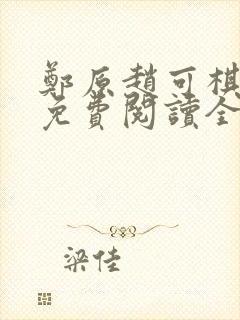 鄭原趙可棋
免費閱讀全
梁佳